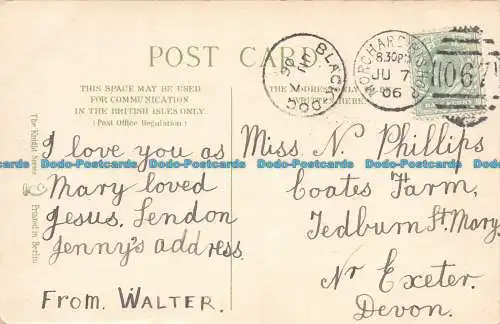 POST CARD.
THIS SPACE MAY BE USED
FOR COMMUNICATION
IN THE BRITISH ISLES ONLY.
(Post Office Regulation)
THE ADDRESS ONLY
HERE.
BLACK DOG
JU 7
06
MORCHARD BISHOP
8.30PM
JU 7
06
1067
I love you as
Mary loved
Jesus. Sendon
Jenny's address.
From. WALTER.
Miss. N. Phillips
Coates Farm,
Tedburn St. Mary
Nr Exeter.
Devon.
The Knight Series
Printed in Berlin
Dodo-Postcards Dodo-Postcards Dodo-Postcards Dodo-Postcards